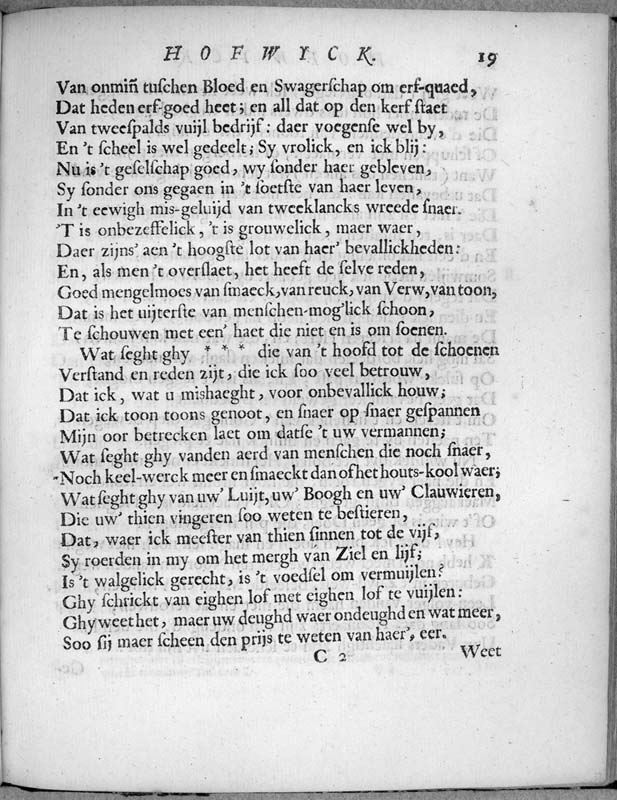 HOFWYCK. 19
Van onmiñ tuſchen Bloed en Swagerſchap om erf-quaed,
Dat heden erf-goed heet; en all dat op den kerf ſtaet
Van tweeſpalds vuijl bedrijf: daer voegenſe wel by,
En 't ſcheel is wel gedeelt; Sy vrolick, en ick blij:
Nu is 't geſelſchap goed, wy ſonder haer gebleven,
Sy ſonder ons gegaen in 't ſoetſte van haer leven,
In 't eewigh mis-geluijd van tweeklancks wreede ſnaer.
'T is onbezeffelick, 't is grouwelick, maer waer,
Daer zijns' aen 't hoogſte lot van haer' bevallickheden:
En, als men 't overſlaet, het heeft de ſelve reden,
Goed mengelmoes van ſmaeck, van reuck, van Verw, van toon,
Dat is het uijterſte van menſchen-mog'lick ſchoon,
Te ſchouwen met een' haet die niet en is om ſoenen.
Wat ſeght ghy * * * die van 't hoofd tot de ſchoenen
Verſtand en reden zijt, die ick ſoo veel betrouw,
Dat ick, wat u mishaeght, voor onbevallick houw;
Dat ick toon toons genoot, en ſnaer op ſnaer geſpannen
Mijn oor betrecken laet om datſe 't uw vermannen;
Wat ſeght ghy vanden aerd van menſchen die noch ſnaer,
Noch keel-werck meer en ſmaeckt dan of het houts-kool waer;
Wat ſeght ghy van uw' Luijt, uw' Boogh en uw' Clauwieren,
Die uw' thien vingeren ſoo weten te beſtieren,
Dat, waer ick meeſter van thien ſinnen tot de vijf,
Sy roerden in my om het mergh van Ziel en lijf;
Is 't walgelick gerecht, is 't voedſel om vermuijlen?
Ghy ſchrickt van eighen lof met eighen lof te vuijlen:
Ghy weet het, maer uw deughd waer ondeughd en wat meer,
Soo ſij maer ſcheen den prijs te weten van haer', eer.
C 2 Weet